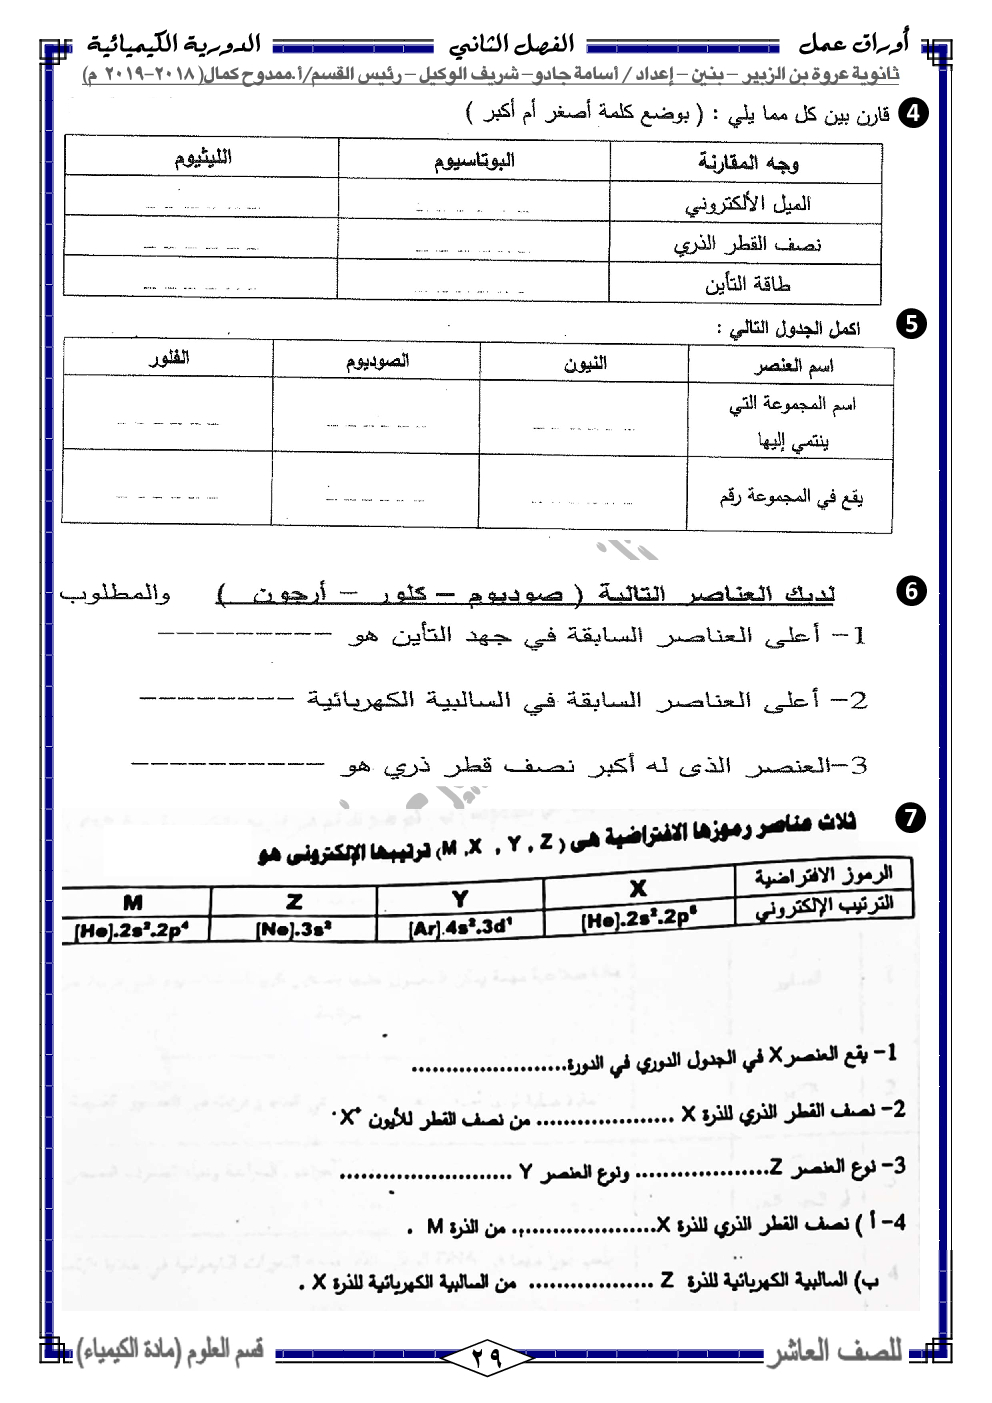 أوراق عمل الفصل الثاني الدورية الكيميائية
ثانوية عروة بن الزبير – بنين – إعداد / أسامة جادو – شريف الوكيل – رئيس القسم/أ.ممدوح كمال( ٢٠١٨-٢٠١٩ م)
4 قارن بين كل مما يلي : ( بوضع كلمة أصغر أم أكبر )
وجه المقارنة البوتاسيوم الليثيوم
الميل الألكتروني _ _ _ _ _ _ _ _ _ _ _ _
نصف القطر الذري _ _ _ _ _ _ _ _ _ _ _ _
طاقة التأين _ _ _ _ _ _ _ _ _ _ _ _
5 اكمل الجدول التالي :
اسم العنصر النيون الصوديوم الفلور
اسم المجموعة التي
ينتمي إليها _ _ _ _ _ _ _ _ _ _ _ _ _ _ _ _ _ _
يقع في المجموعة رقم _ _ _ _ _ _ _ _ _ _ _ _ _ _ _ _ _ _
6 لديك العناصر التالية ( صوديوم – كلور – أرجون ) والمطلوب
1- أعلى العناصر السابقة في جهد التأين هو ---------
2- أعلى العناصر السابقة في السالبية الكهربائية --------
3-العنصر الذى له أكبر نصف قطر ذري هو ----------
7 ثلاث عناصر رموزها الافتراضية هى ( M ,X , Y , Z) ترتيبها الإلكترونى هو
الرموز الافتراضية X Y Z M
الترتيب الإلكتروني [He].2s².2p⁵ [Ar].4s².3d¹ [Ne].3s² [He].2s².2p⁴
1- يقع العنصر X في الجدول الدوري في الدورة.......................
2- نصف القطر الذري للذرة X .................... من نصف القطر للأيون X⁺ .
3- نوع العنصر Z................... ونوع العنصر Y .........................
4- أ ) نصف القطر الذري للذرة X..................... من الذرة M .
ب) السالبية الكهربائية للذرة Z .................. من السالبية الكهربائية للذرة X .
للصف العاشر ٢٩ قسم العلوم (مادة الكيمياء)